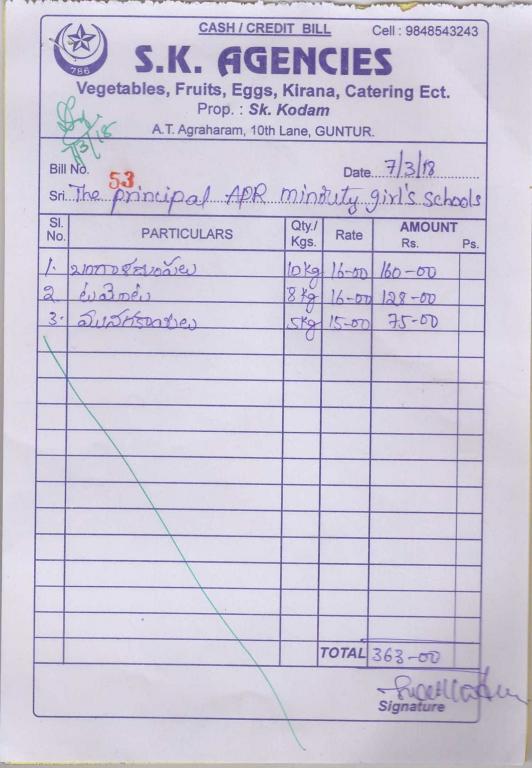 CASH / CREDIT BILL
Cell : 9848543243
786
S.K. AGENCIES
Vegetables, Fruits, Eggs, Kirana, Catering Ect.
Prop. : Sk. Kodam
A.T. Agraharam, 10th Lane, GUNTUR.
7/3/18
Bill No. 53
Date 7/3/18
Sri. The principal APR minority girl's schools
Sl. No. PARTICULARS Qty./ Kgs. Rate AMOUNT Rs. Ps.
1. 10kg 16-00 160-00
2 8kg 16-00 128-00
3. 5kg 15-00 75-00
TOTAL 363-00
Signature